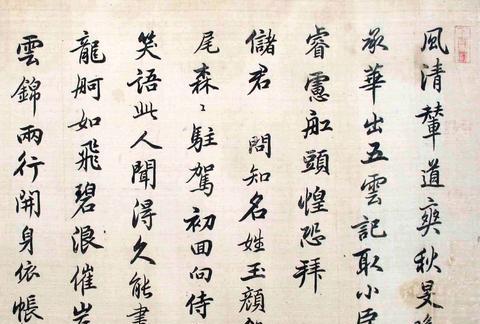 風清輦道奭秋旻
承華出五雲記取小臣
睿慮舡頭惶恐拜
儲君 問知名姓玉顏
尾森〻駐駕初回向侍
笑語此人聞得久能書
龍舸如飛碧浪催岩
雲錦兩行開身依帳